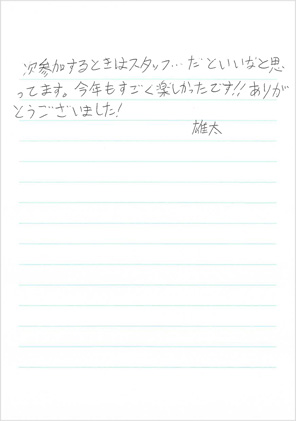 次参加するときはスタッフ…だといいなと思
ってます。今年もすごく楽しかったです!!ありが
とうございました!
雄太